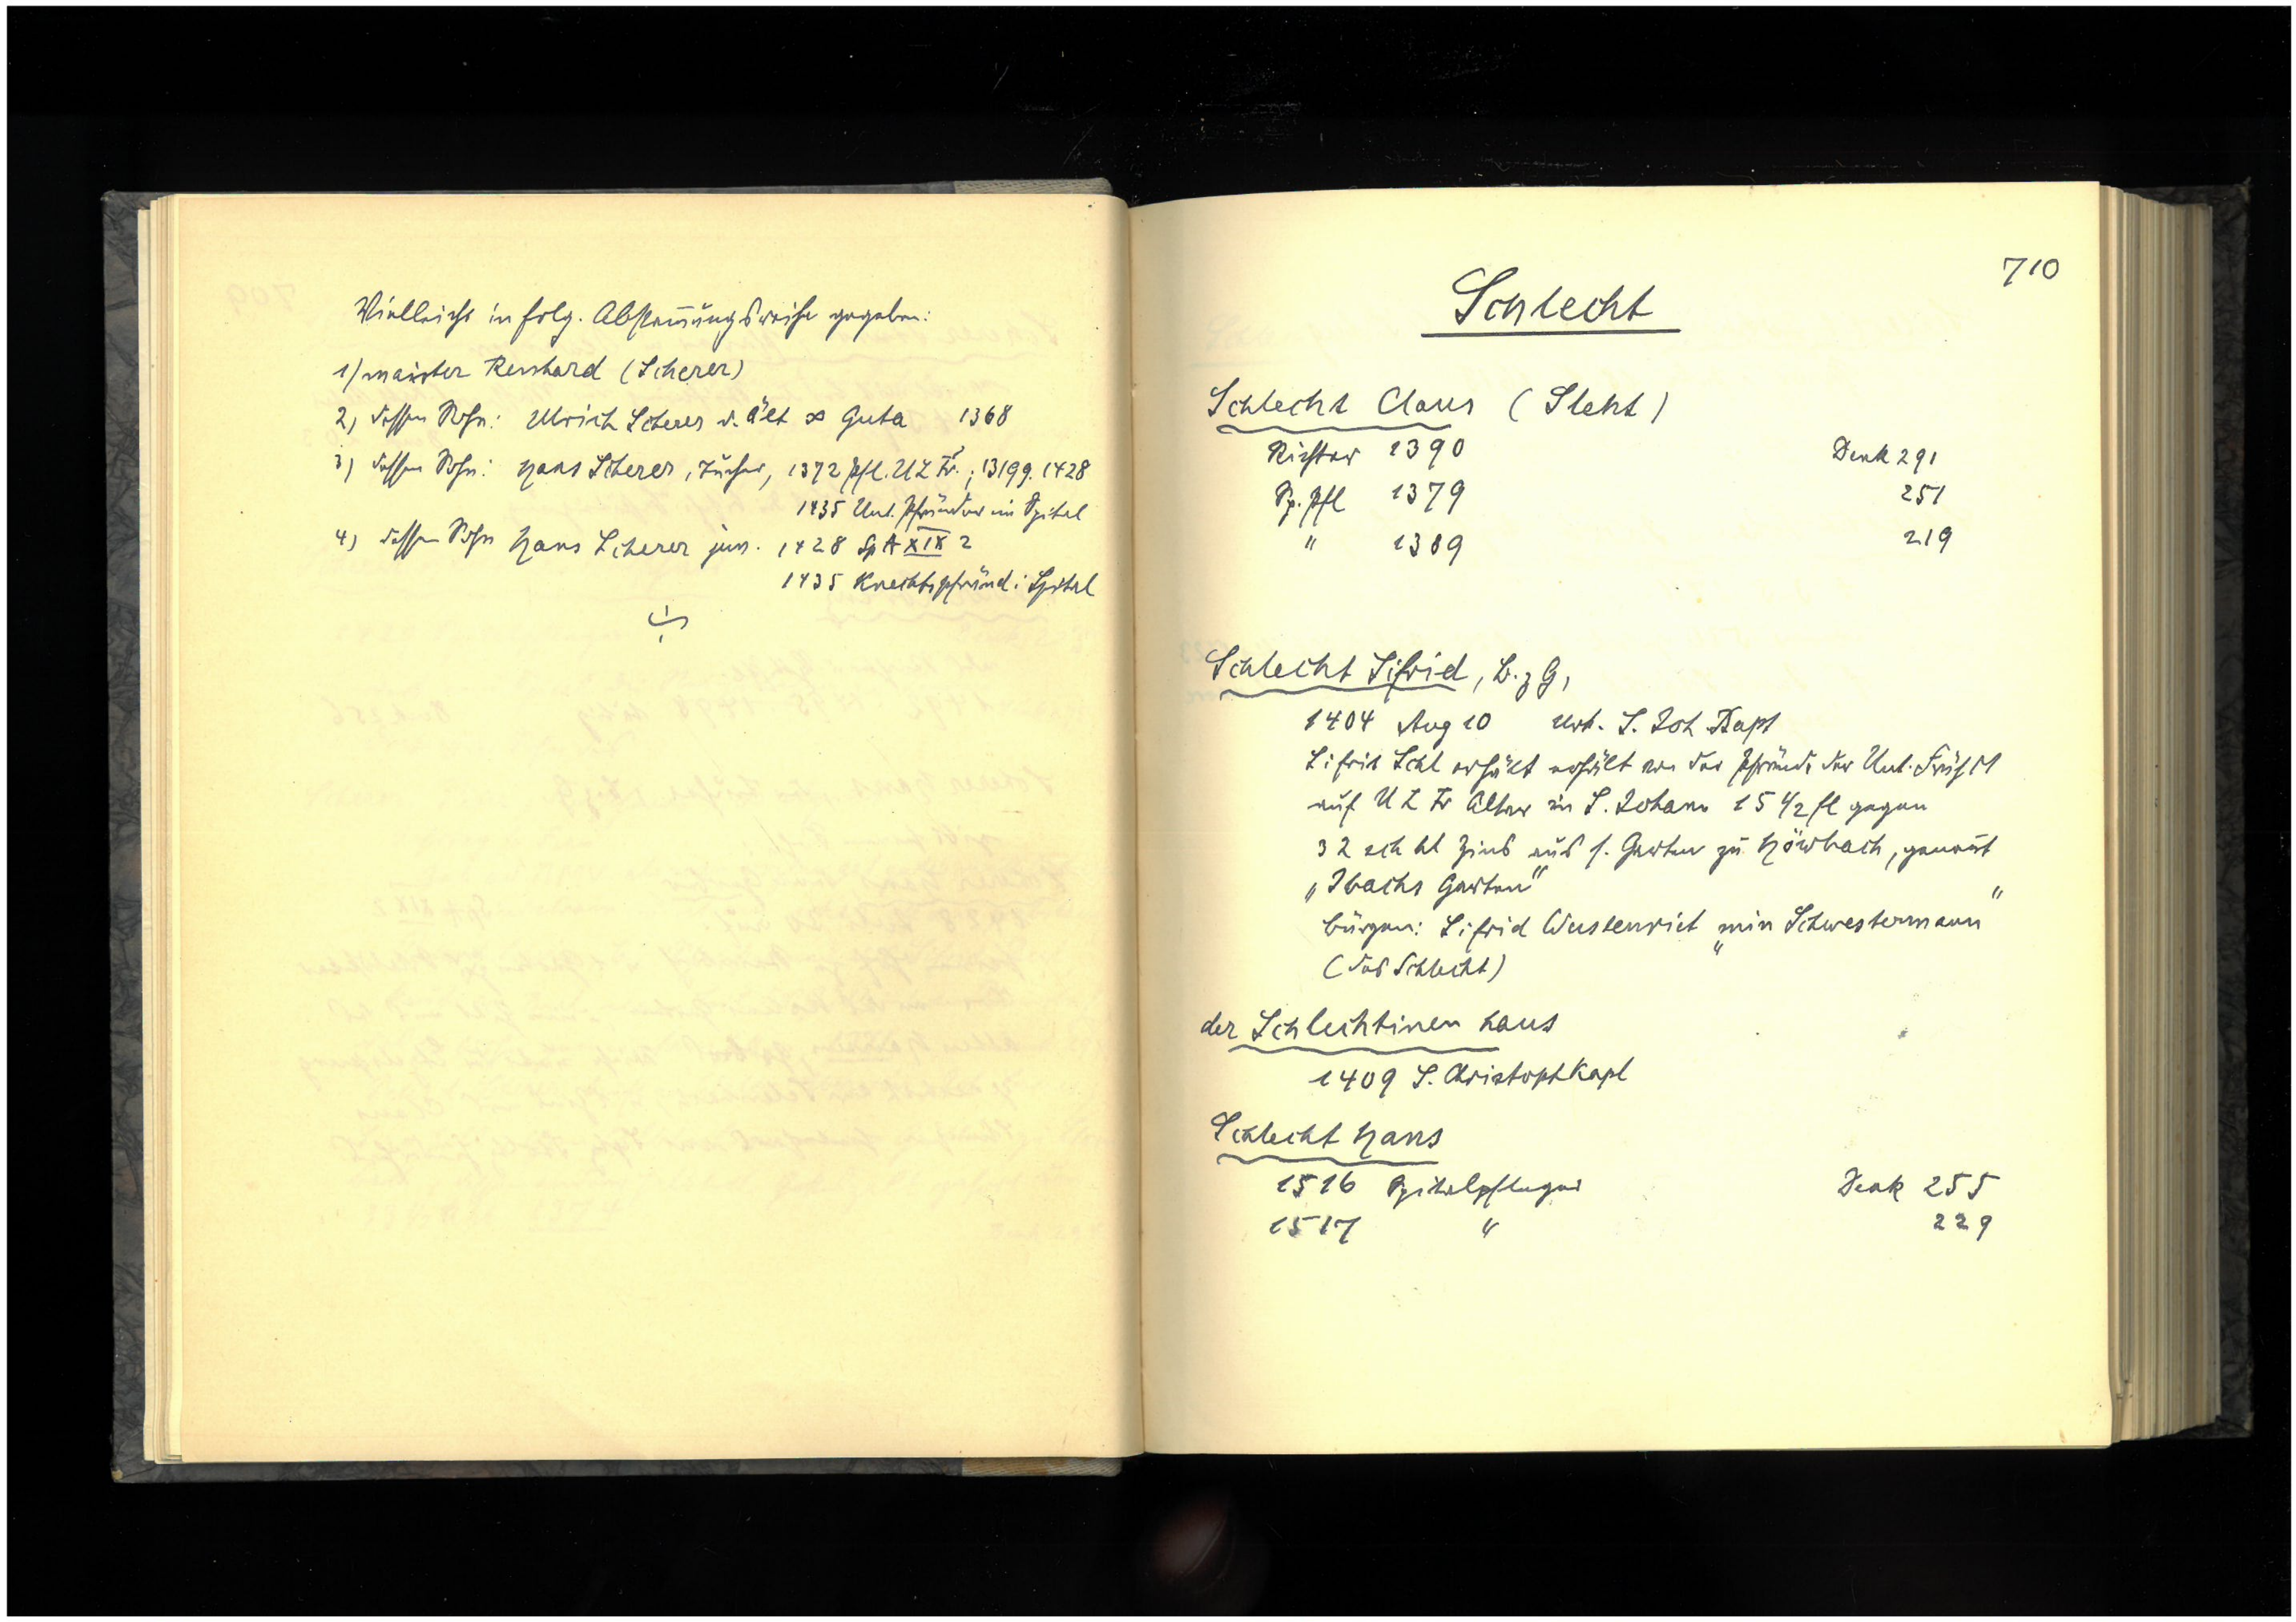 Vielleicht in folg. Abstam̄ungsweise gegeben:
1) maister Renhard (Scherer)
2) dessen Sohn: Ulrich Scherer d. Ält ∞ Guta 1368
3) dessen Sohn: Hans Scherer, 1372 Pfl. U L Fr.; 1428
1435 Unt. Pfründner im Spital
4) dessen Sohn Hans Scherer jun. 1428 Sp A XIX 2
1435 Knechtspfründ i Spital
710
Schlecht
Schlecht Claus (Sleht)
Richter 1390 Denk 291
Sp. Pfl 1379 251
" 1389 219
Schlecht Sifrid, B. z G,
1404 Aug 10 Urk. S. Joh Bapt
Sifrit Schl erhält erhält von der Pfründe der Unt. Frühm
auf U L Fr Altar in S. Johann 15 1/2 fl gegen
32 sch hl Zins aus s. Garten zu Hörbach, genan̄t
"Ibachs Garten"
Bürgen: Sifrid Wustenriet "min Schwestermann"
(des Schlecht)
der Schlechtinen haus
1409 S. Christoph Kapl
Schlecht Hans
1516 Spitalpfleger Denk 255
1517 " 229